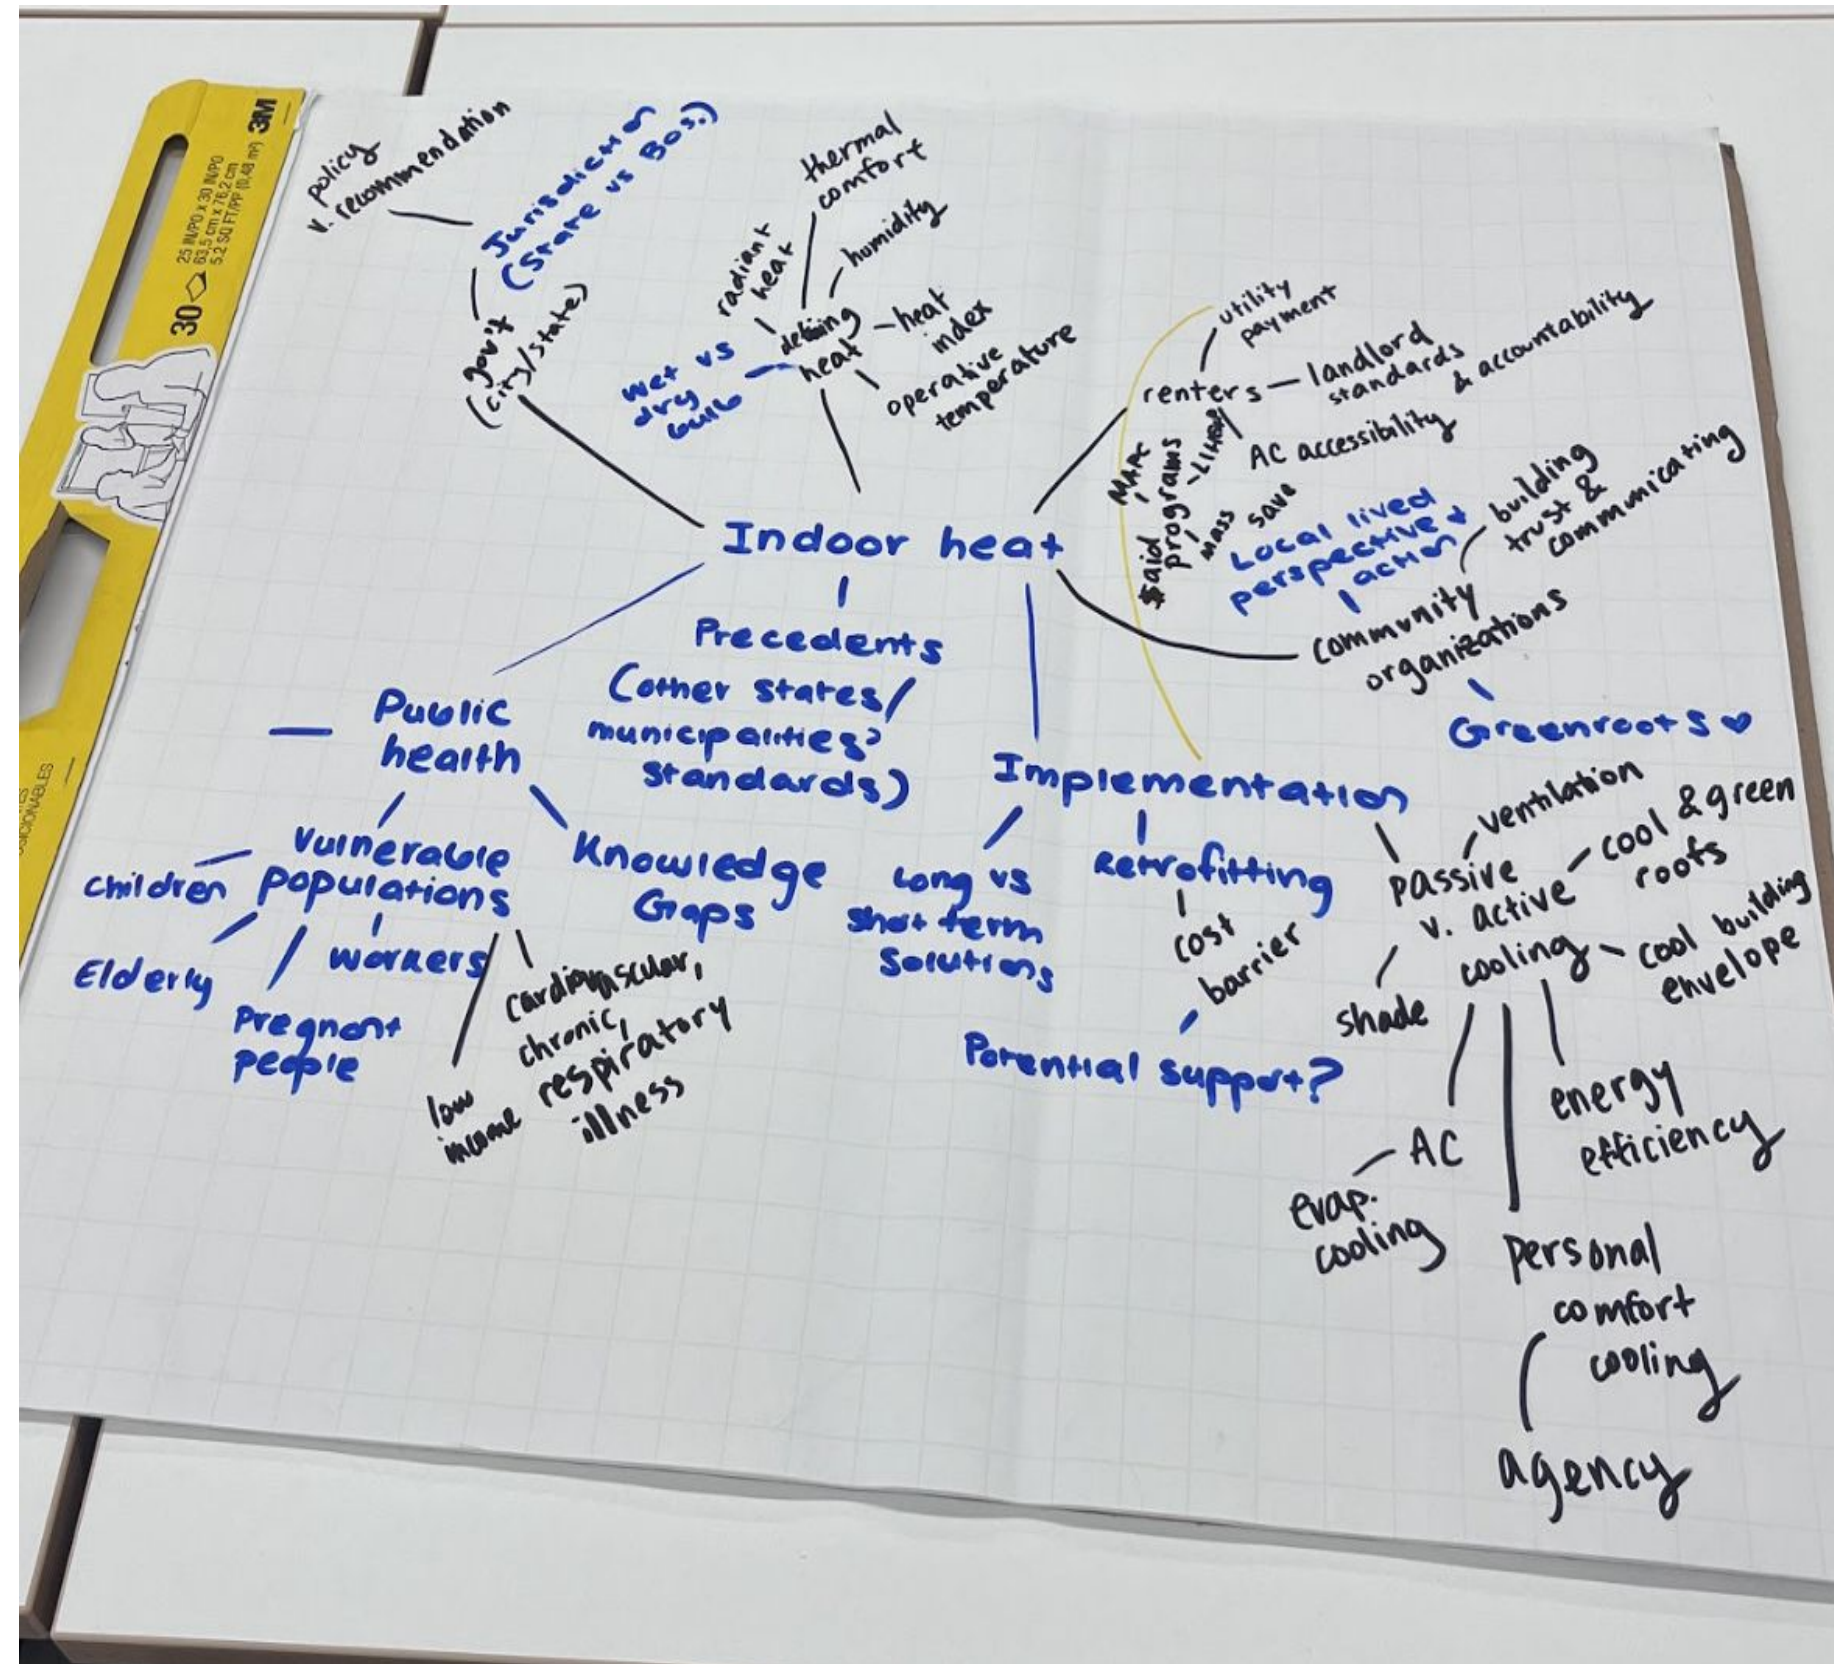 3M
25 IN/PO x 30 IN/PO
63,5 cm x 76,2 cm
5.2 SQ FT/PP (0,48 m²)
30
policy
v. recommendation
Jurisdiction
(State vs Bos.)
gov't
(city/state)
thermal
comfort
humidity
radiant
heat
defining
heat
heat
index
operative
temperature
wet vs
dry
bulb
utility
payment
renters
landlord
standards
& accountability
AC accessibility
$ aid
programs
LIHEAP
Mass
save
Indoor heat
Local lived
perspective +
action
building
trust &
communicating
community
organizations
Greenroots ♥
Precedents
(other states/
municipalities'
standards)
Public
health
Vulnerable
populations
children
Elderly
Pregnant
people
workers
low
income
cardiovascular,
chronic,
respiratory
illness
Knowledge
Gaps
Implementation
Long vs
short term
Solutions
Retrofitting
cost
barrier
Potential support?
passive
v. active
cooling
ventilation
cool & green
roofs
cool building
envelope
shade
AC
evap.
cooling
energy
efficiency
personal
comfort
cooling
agency